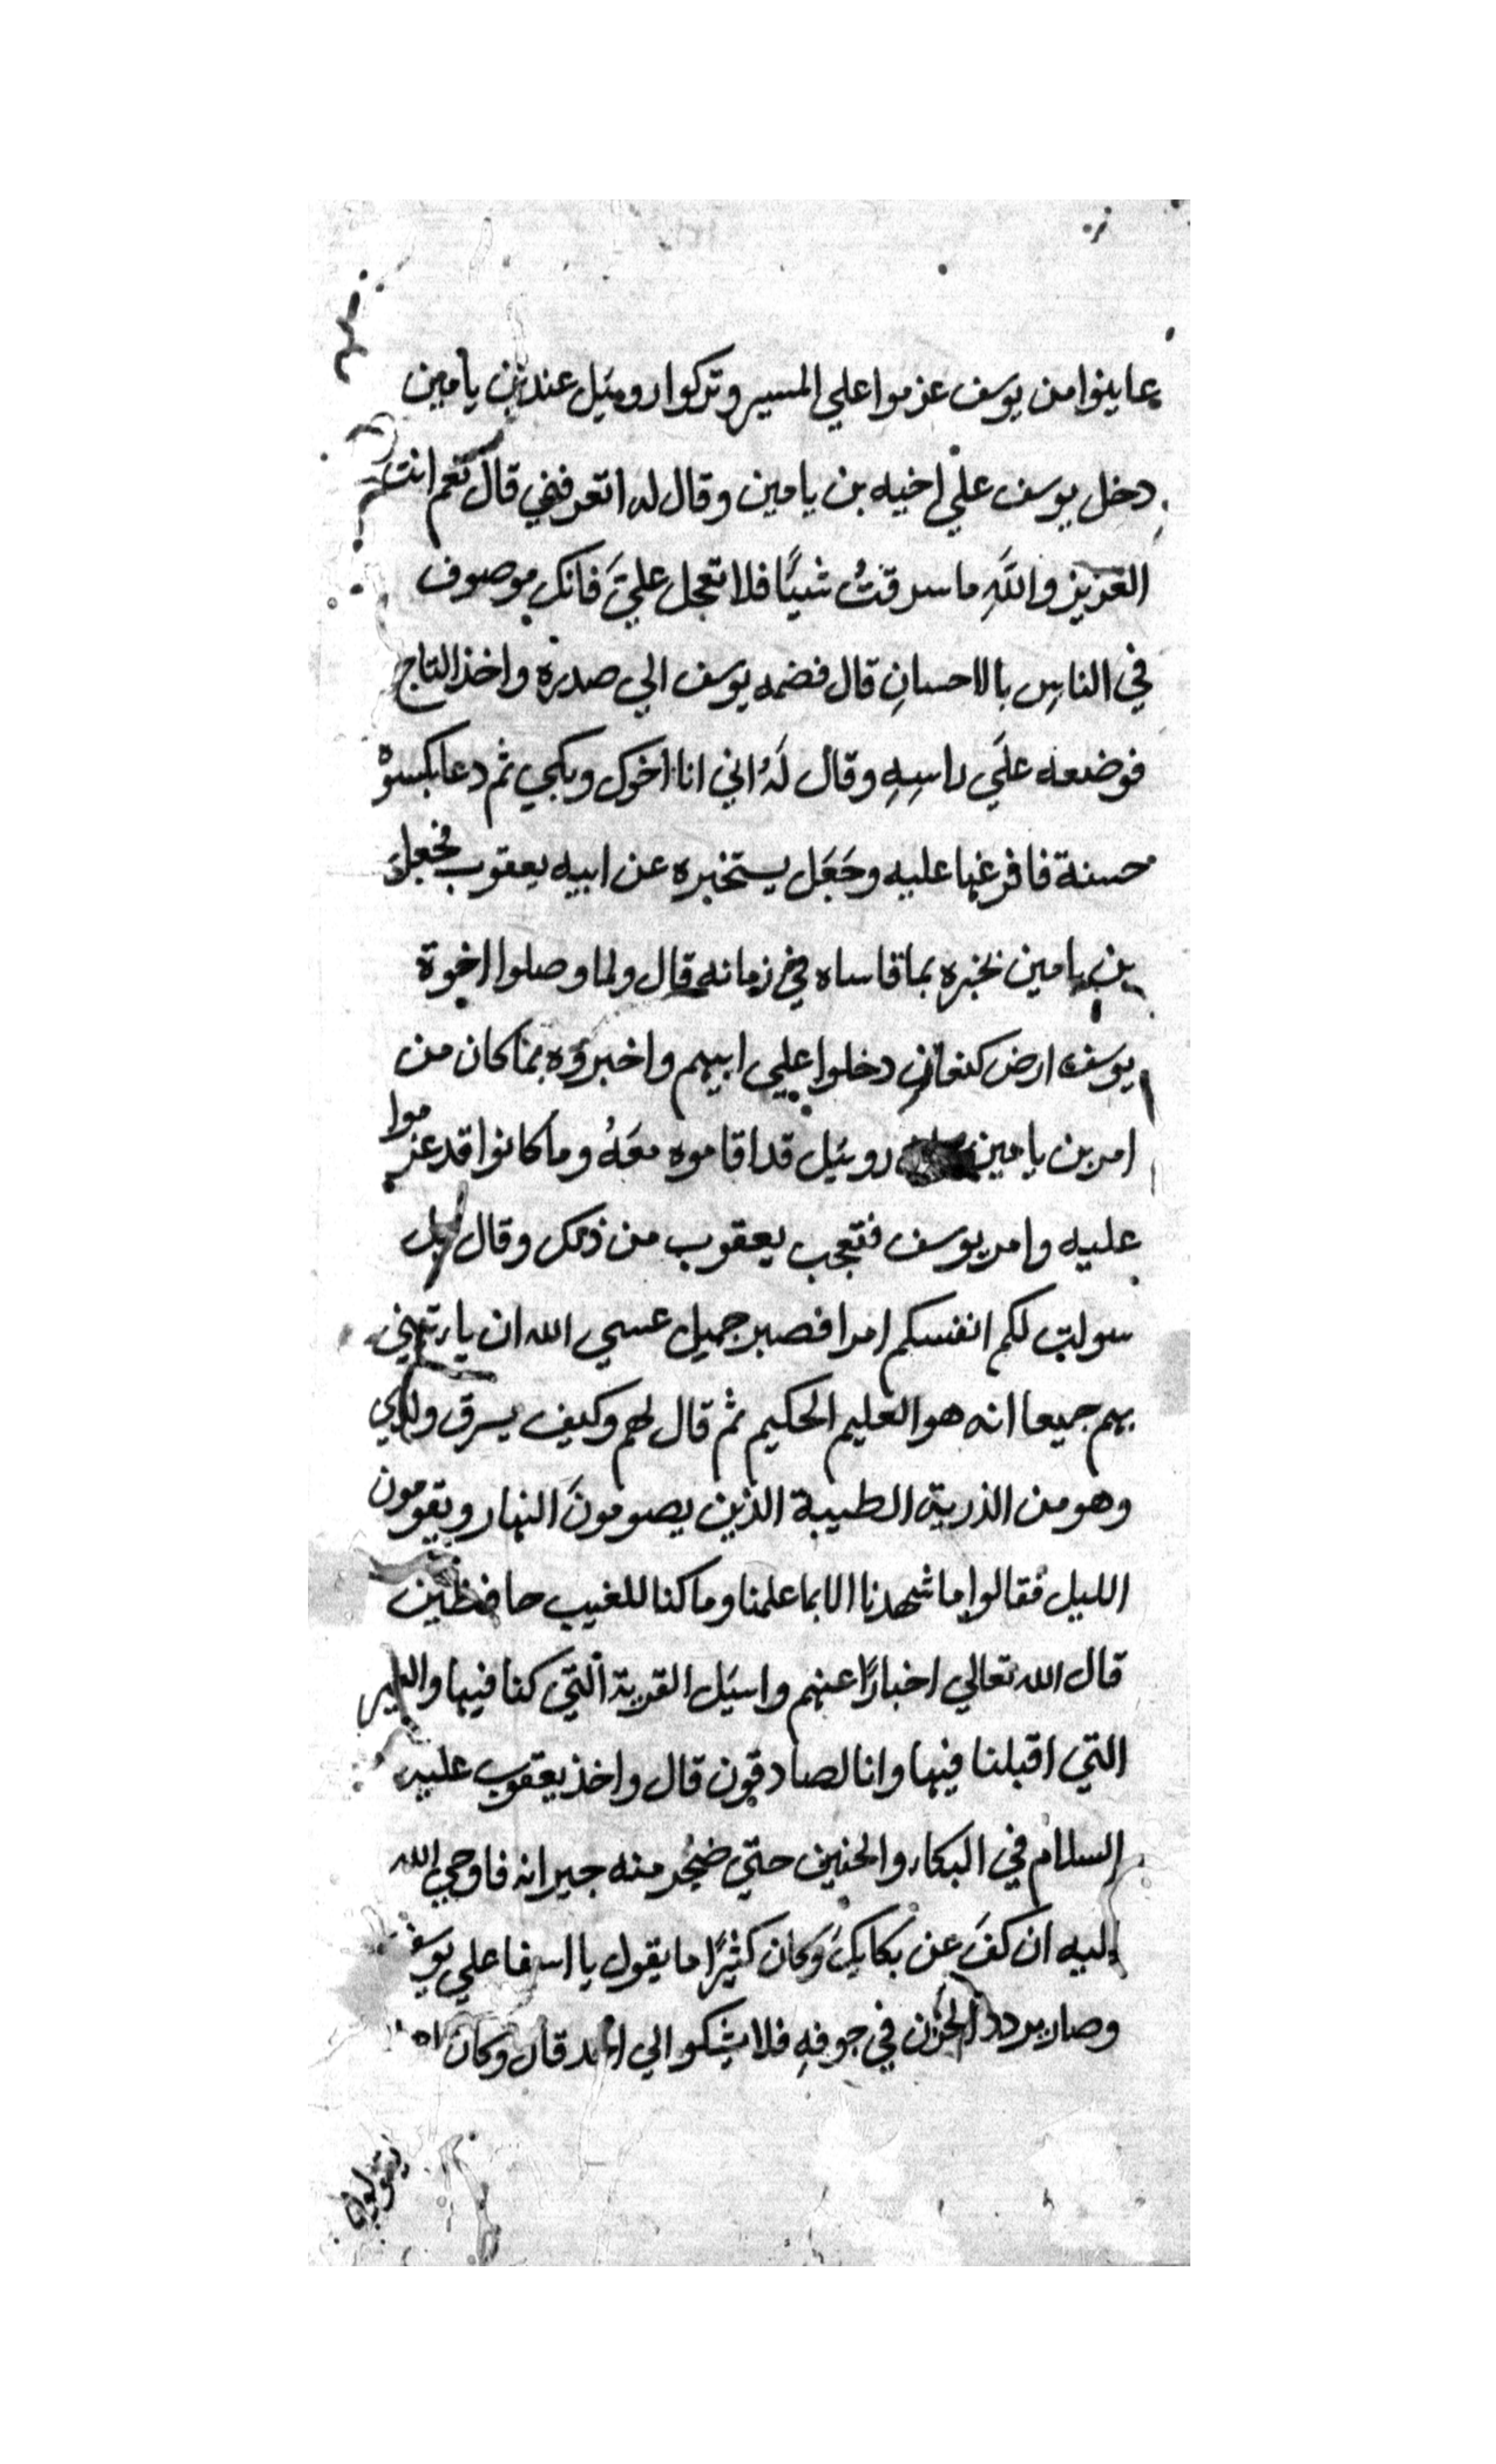 عاينوا من يوسف عزموا علي المسير وتركوا روبيل عند بن يامين
دخل يوسف علي اخيه بن يامين وقال له اتعرفني قال نعم انت
العزيز واللهِ ما سرقتُ شيئًا فلا تعجل عليَّ فانك موصوف
في الناسِ بالاحسانِ قال فضمه يوسف الي صدره واخذ التاج
فوضعه علَي راسِهِ وقال لَهُ اني انا اخوك وبكي ثم دعا بكسوة
حسنة فافرغها عليه وجَعَل يستخبره عن ابيه يعقوب فجعل
بن يامين يخبره بما قاساه في زمانه قال ولما وصلوا اخوة
يوسف ارض كنعان دخلوا علي ابيهم واخبروه بما كان من
امر بن يامين روبيل قد اقاموه معَهُ وما كانوا قد عزموا
عليه وامر يوسف فتعجب يعقوب من ذلك وقال بل
سولت لكم انفسكم امرا فصبر جميل عسي الله ان ياتيني
بهم جميعا انه هو العليم الحكيم ثم قال لهم وكيف يسرق ولدي
وهو من الذرية الطيبة الذين يصومونَ النهار ويقومون
الليل فقالوا ما شهدنا الا بما علمنا وما كنا للغيب حافظين
قال الله تعالي اخبارًا عنهم واسيَل القرية التي كنا فيها والعير
التي اقبلنا فيها وانا لصادقون قال واخذ يعقوب عليه
السلام في البكاء والحنين حتي ضجر منه جيرانه فاوحي الله
اليه ان كفَ عن بكايكَ وَكان كثيرًا ما يقول يا اسفا علي يوسف
وصار يردد الحزن في جوفهِ فلا يشكوا الي احد قال وكان